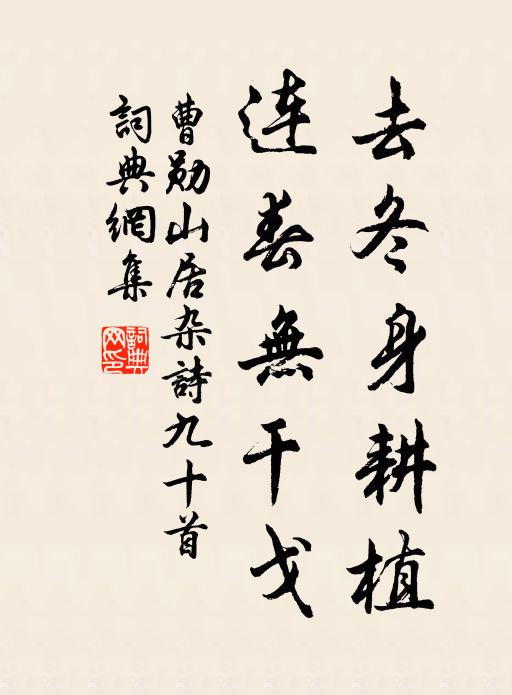 去冬身耕植
連春無干戈
曹勛山居杂詩九十首
詞典網集
詞典網印